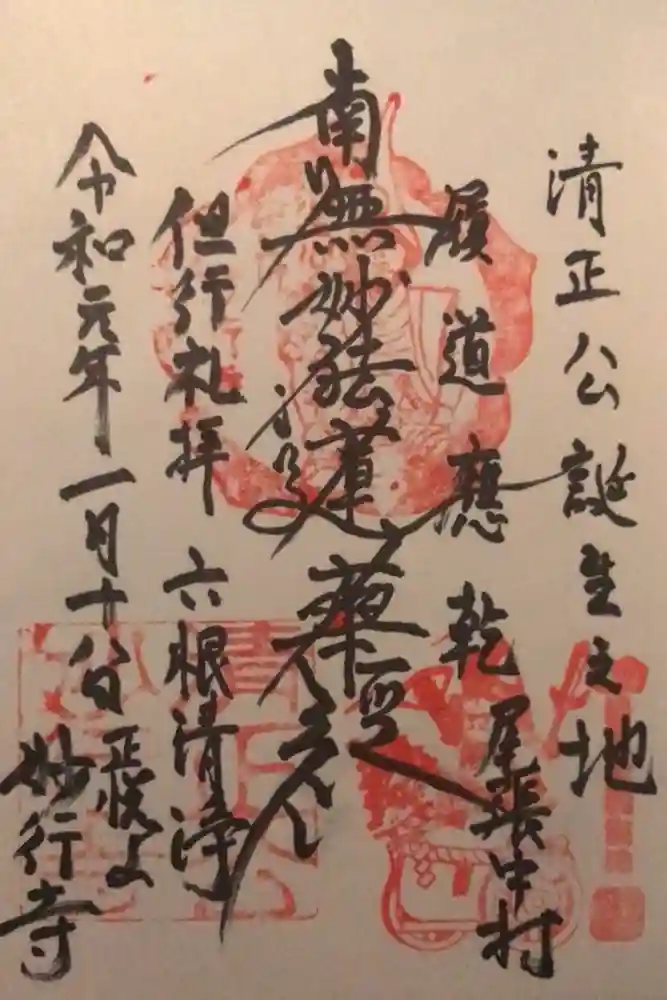 清正公誕生之地
尾張中村
履道應乾
南無妙法蓮華経
但行礼拝 六根清浄
令和元年一月十八日
妙行寺